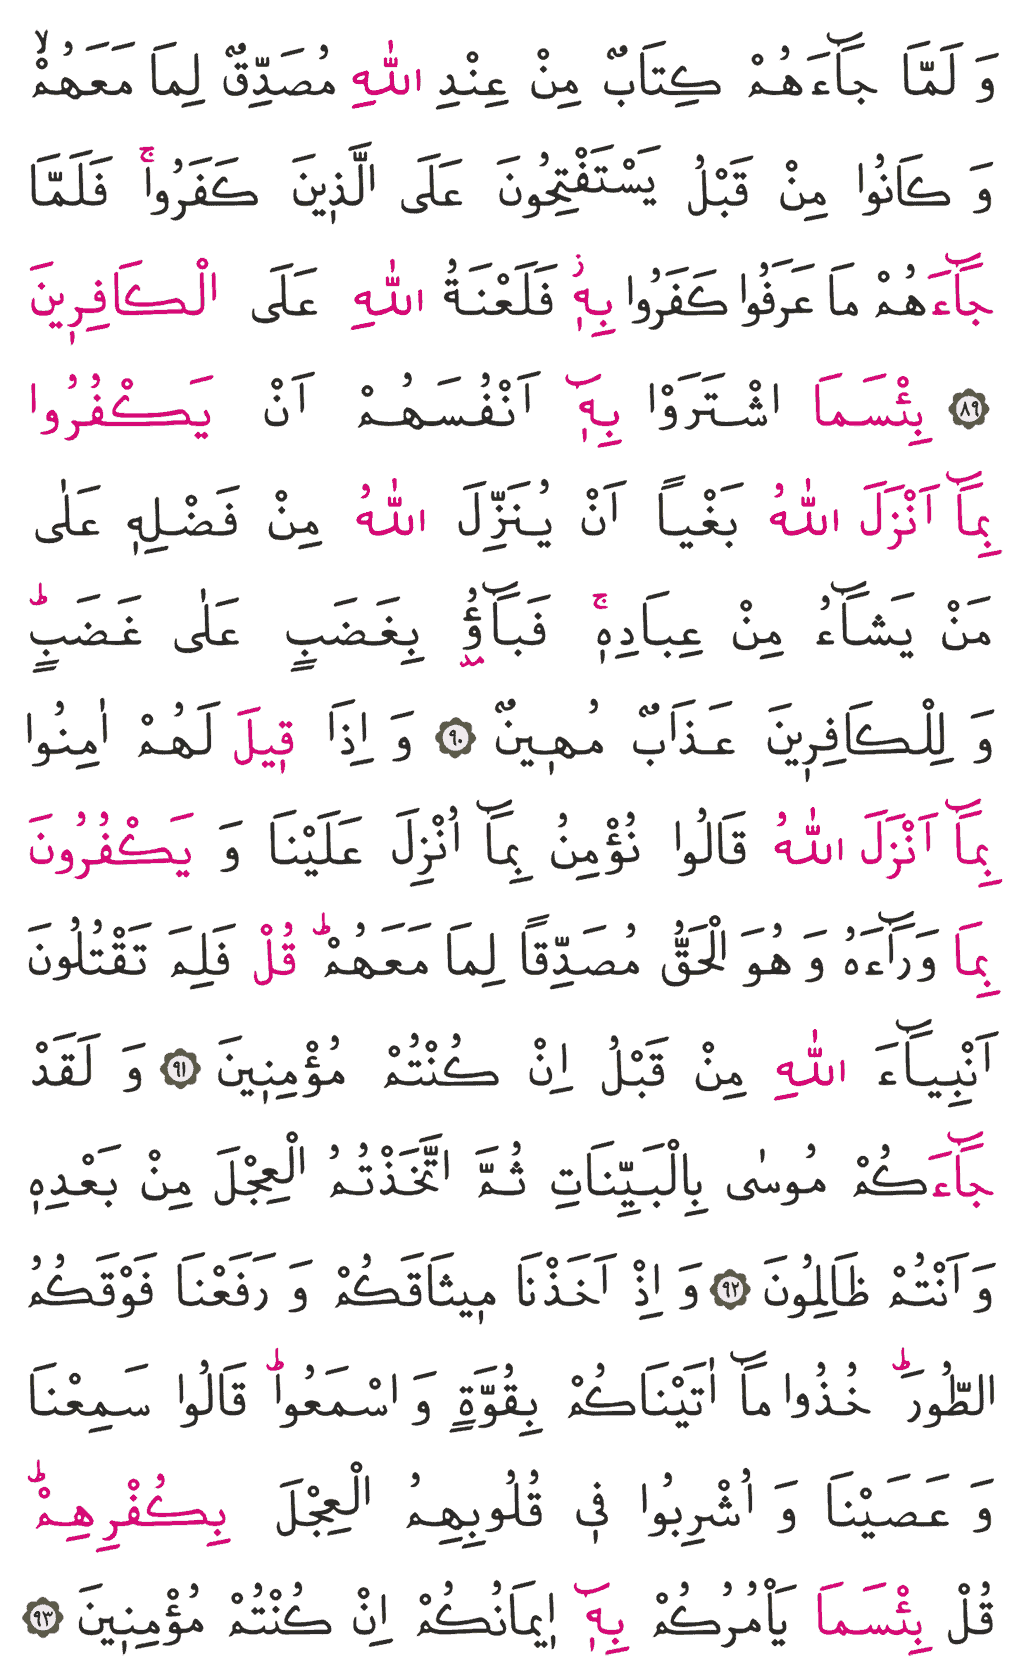 وَ لَمَّا جَاۤءَهُمْ كِتَابٌ مِنْ عِنْدِ اللّٰهِ مُصَدِّقٌ لِمَا مَعَهُمْۙ
وَ كَانُوا مِنْ قَبْلُ يَسْتَفْتِحُونَ عَلَى الَّذ۪ينَ كَفَرُواۚ فَلَمَّا
جَاۤءَهُمْ مَا عَرَفُوا كَفَرُوا بِه۪ۘ فَلَعْنَةُ اللّٰهِ عَلَى الْكَافِر۪ينَ
﴿٨٩﴾ بِئْسَمَا اشْتَرَوْا بِه۪ۤ اَنْفُسَهُمْ اَنْ يَكْفُرُوا
بِمَاۤ اَنْزَلَ اللّٰهُ بَغْياً اَنْ يُنَزِّلَ اللّٰهُ مِنْ فَضْلِه۪ عَلٰى
مَنْ يَشَاۤءُ مِنْ عِبَادِه۪ۚ فَبَاۤؤُ بِغَضَبٍ عَلٰى غَضَبٍۜ
وَ لِلْكَافِر۪ينَ عَذَابٌ مُه۪ينٌ ﴿٩٠﴾ وَ اِذَا ق۪يلَ لَهُمْ اٰمِنُوا
بِمَاۤ اَنْزَلَ اللّٰهُ قَالُوا نُؤْمِنُ بِمَاۤ اُنْزِلَ عَلَيْنَا وَ يَكْفُرُونَ
بِمَا وَرَاۤءَهُ وَ هُوَ الْحَقُّ مُصَدِّقاً لِمَا مَعَهُمْۜ قُلْ فَلِمَ تَقْتُلُونَ
اَنْبِيَاۤءَ اللّٰهِ مِنْ قَبْلُ اِنْ كُنْتُمْ مُؤْمِن۪ينَ ﴿٩١﴾ وَ لَقَدْ
جَاۤءَكُمْ مُوسٰى بِالْبَيِّنَاتِ ثُمَّ اتَّخَذْتُمُ الْعِجْلَ مِنْ بَعْدِه۪
وَ اَنْتُمْ ظَالِمُونَ ﴿٩٢﴾ وَ اِذْ اَخَذْنَا م۪يثَاقَكُمْ وَ رَفَعْنَا فَوْقَكُمُ
الطُّورَۜ خُذُوا مَاۤ اٰتَيْنَاكُمْ بِقُوَّةٍ وَ اسْمَعُواۜ قَالُوا سَمِعْنَا
وَ عَصَيْنَا وَ اُشْرِبُوا ف۪ي قُلُوبِهِمُ الْعِجْلَ بِكُفْرِهِمْۜ
قُلْ بِئْسَمَا يَاْمُرُكُمْ بِه۪ۤ ا۪يمَانُكُمْ اِنْ كُنْتُمْ مُؤْمِن۪ينَ ﴿٩٣﴾